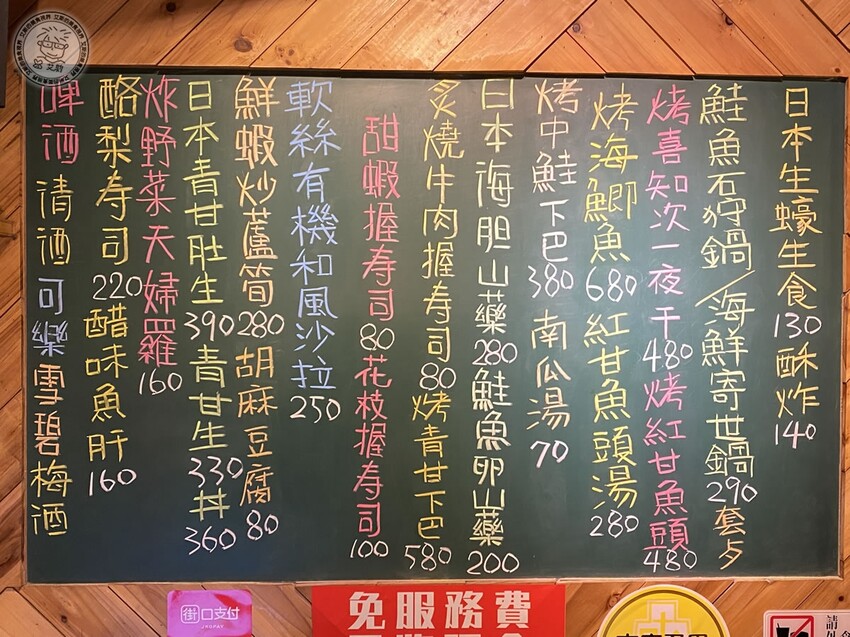 日本生蠔生食130酥炸140
鮭魚石狩鍋/海鮮寄世鍋290套夕
烤喜知次一夜干480烤紅甘魚頭480
烤海鯽魚680紅甘魚頭湯280
烤中鮭下巴380南瓜湯70
日本海胆山藥280鮭魚卵山藥200
炙燒牛肉握寿司80烤青甘下巴580
甜蝦握寿司80花枝握寿司100
軟絲有機和風沙拉250
鮮蝦炒蘆筍280胡麻豆腐80
日本青甘肚生390青甘生330丼360
炸野菜天婦羅160
酪梨寿司220醋味魚肝160
啤酒 清酒 可樂 雪碧 梅酒
街口支付
JKOPAY
免服務費